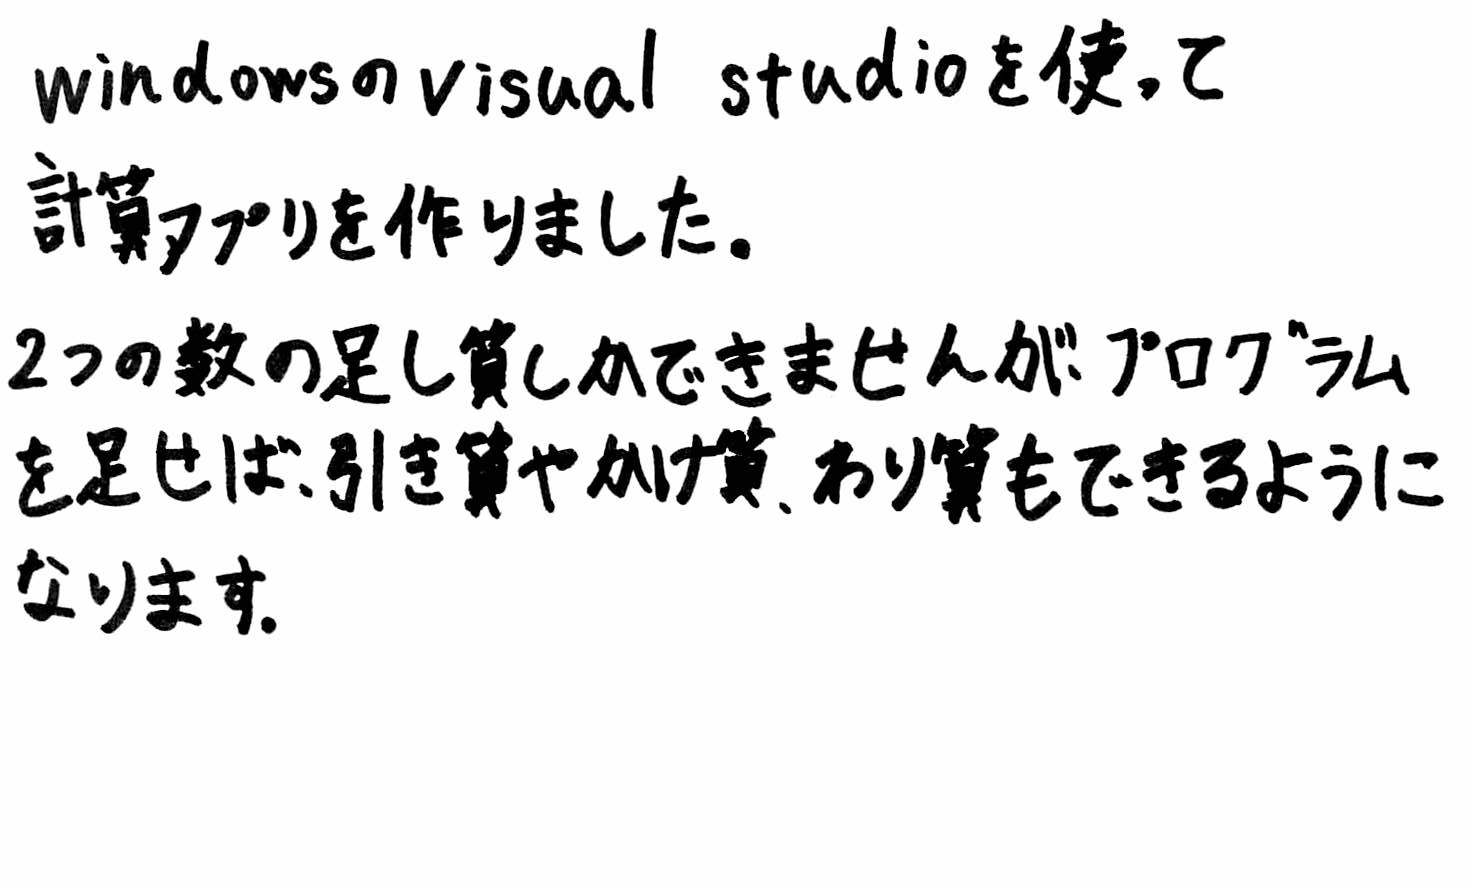 windowsのvisual studioを使って
計算アプリを作りました。
2つの数の足し算しかできませんが、プログラム
を足せば、引き算やかけ算、わり算もできるように
なります。